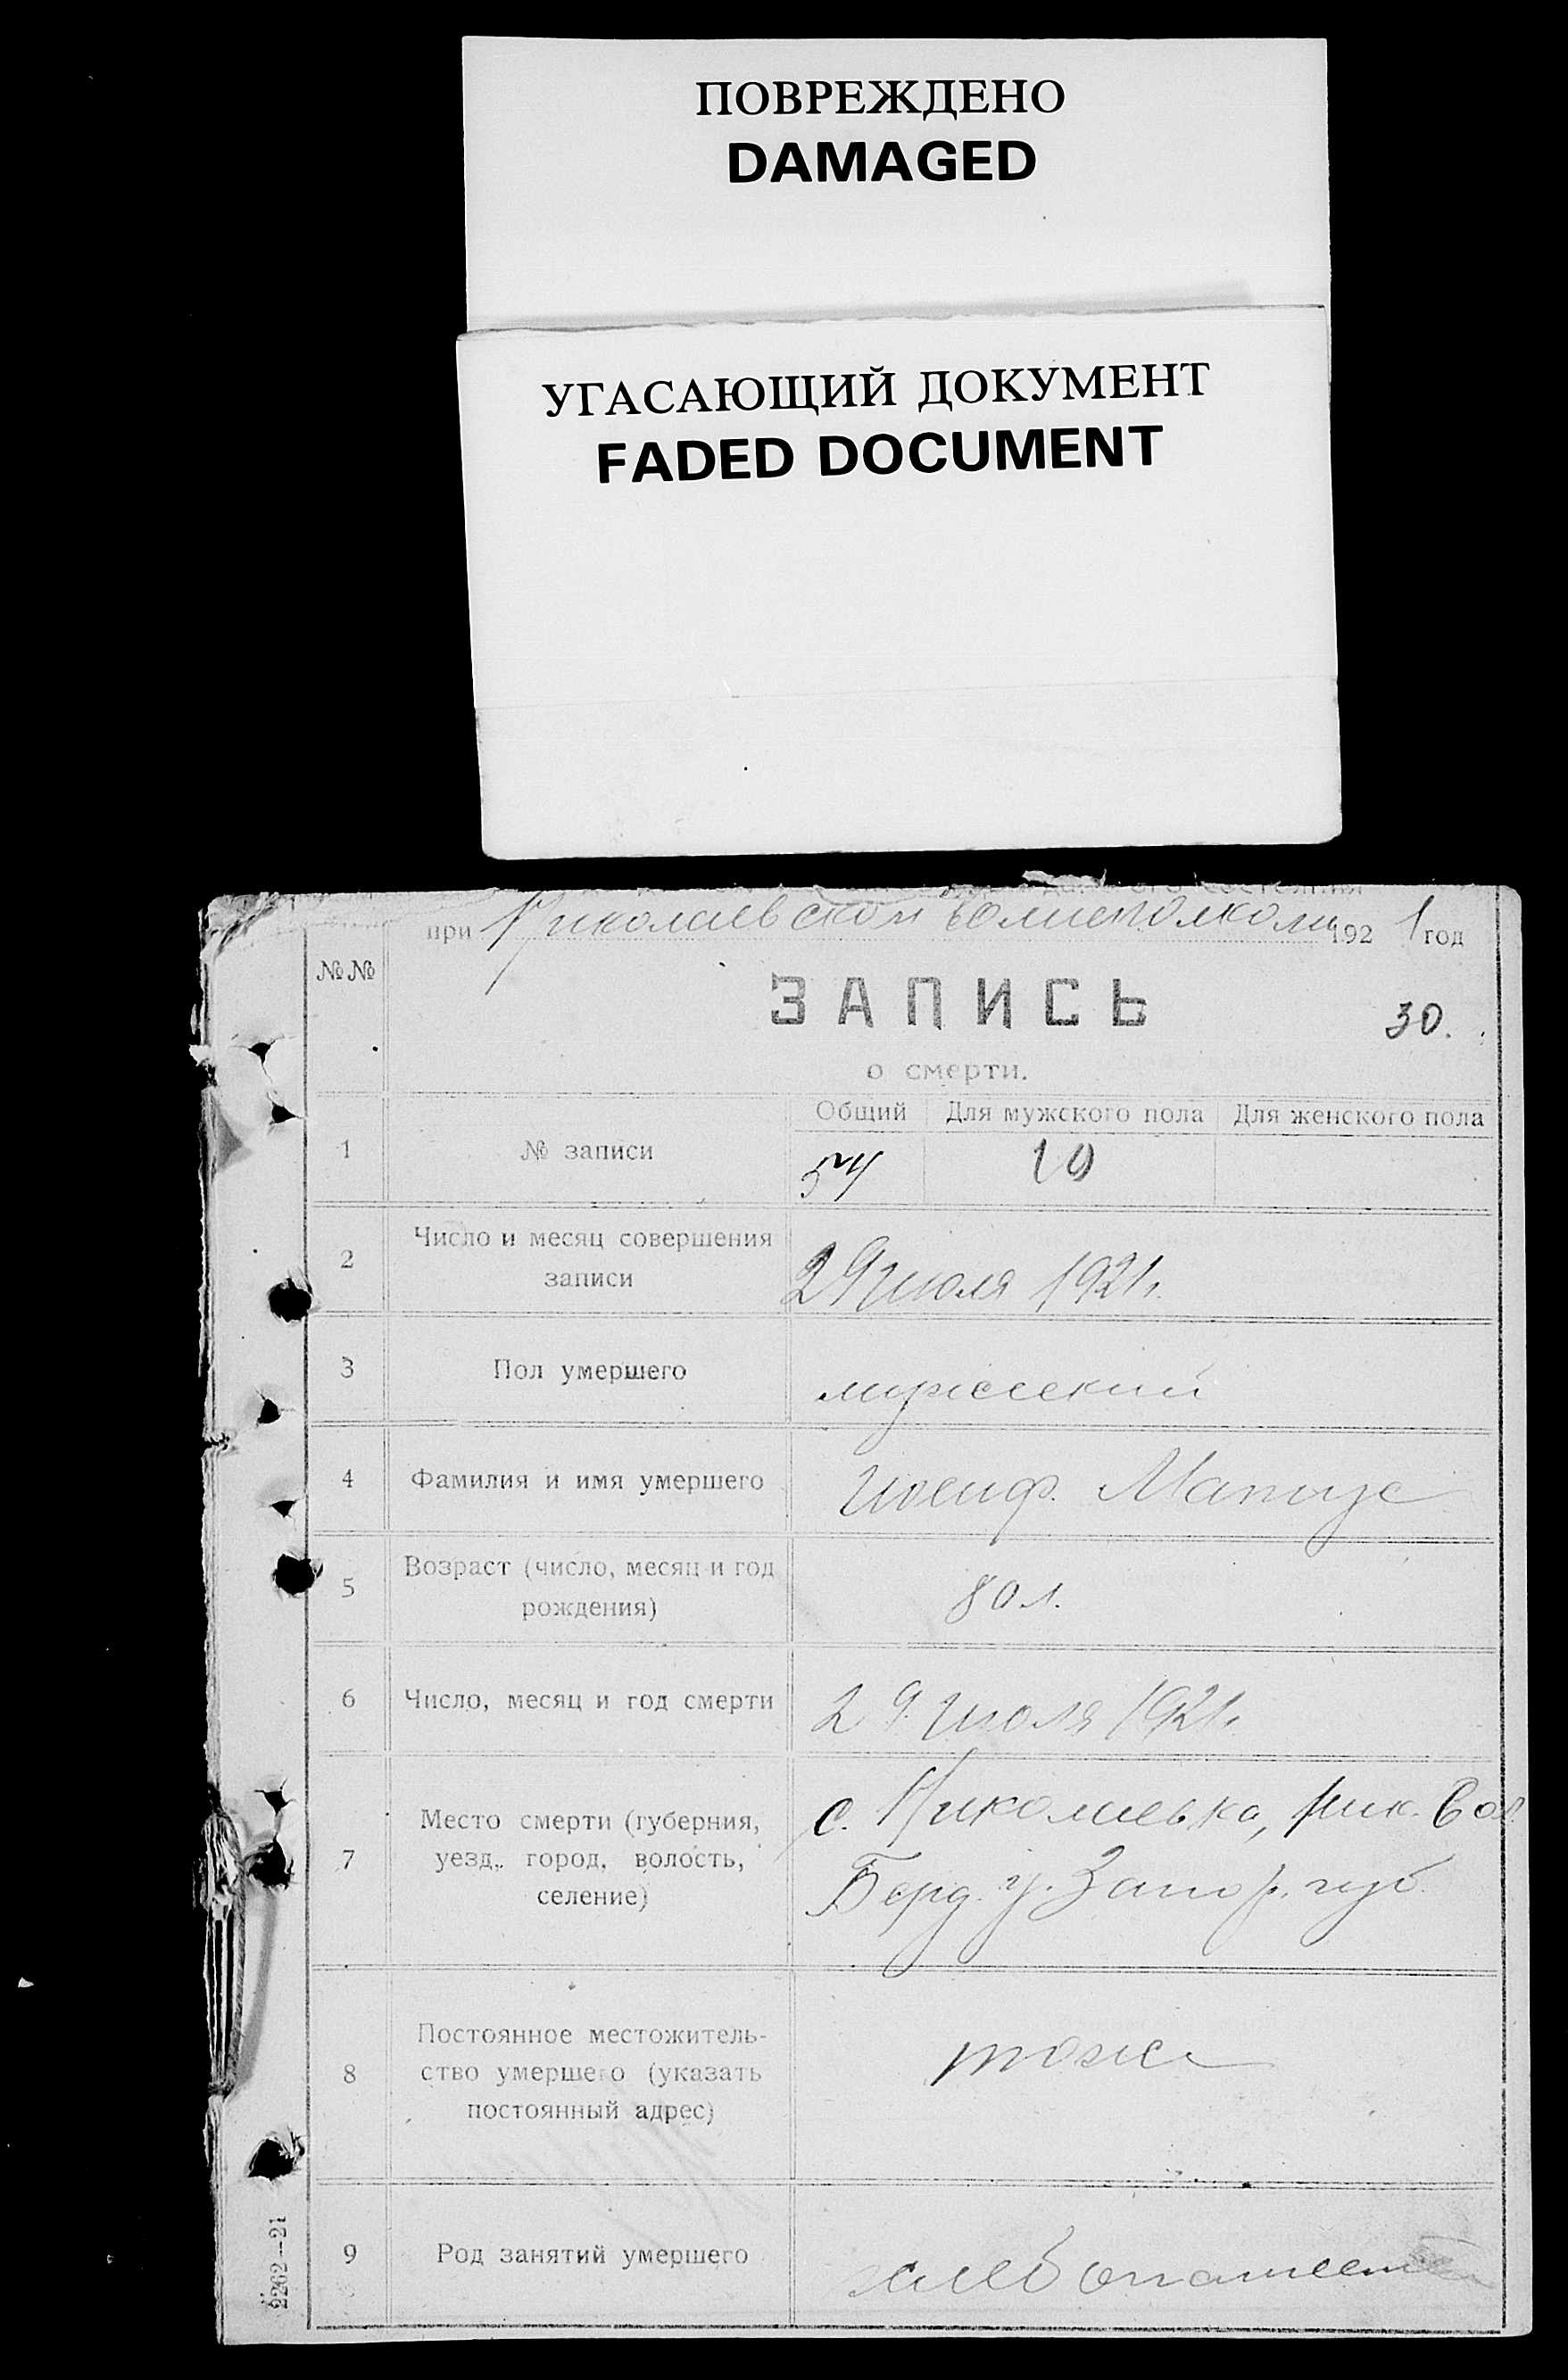 ПОВРЕЖДЕНО
DAMAGED
УГАСАЮЩИЙ ДОКУМЕНТ
FADED DOCUMENT
при Николаевском волисполкоме 1921 год
№№
ЗАПИСЬ
30.
о смерти.
Общий Для мужского пола Для женского пола
1 № записи 54 10
2 Число и месяц совершения
записи 29 июля 1921 г.
3 Пол умершего мужеский
4 Фамилия и имя умершего Иосиф. Матус
5 Возраст (число, месяц и год
рождения) 80 л.
6 Число, месяц и год смерти 29 июля 1921 г.
7 Место смерти (губерния,
уезд, город, волость,
селение)
с. Николаевка, Ник. Вол.
Берд. у. Запор. губ.
8 Постоянное местожитель-
ство умершего (указать
постоянный адрес)
тоже
9 Род занятий умершего хлебопашество
2262—21